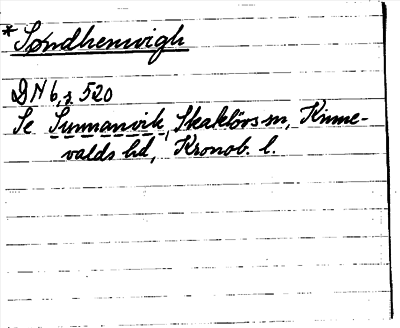 * Søndhenwigh
DN 6, s. 520
Se Sunnanvik, Skatelövs sn, Kinne-
valds hd, Kronob. l.